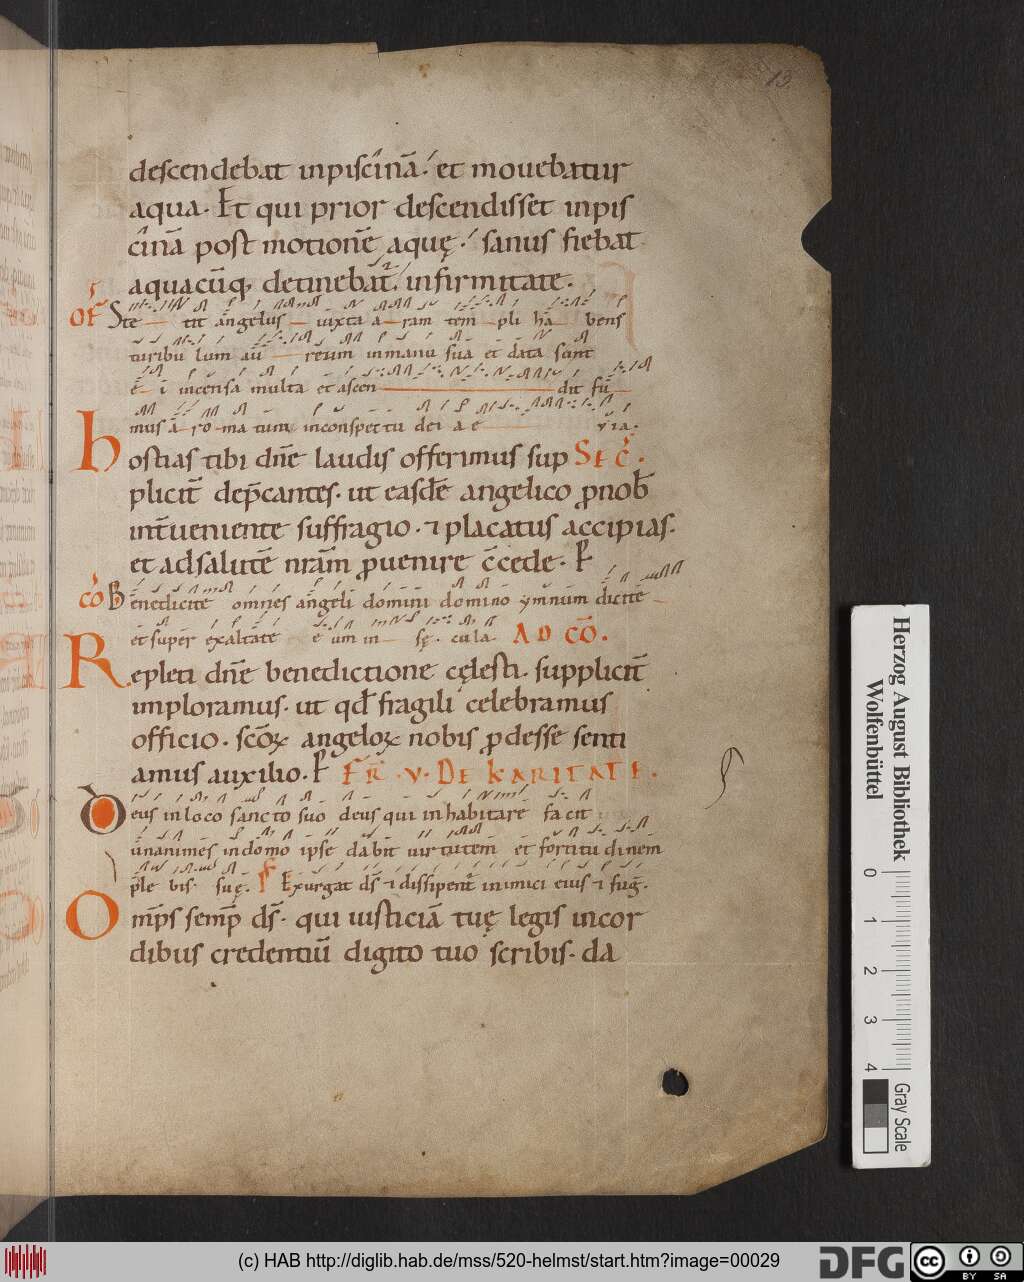 13.
descendebat inpiscinā. et mouebatur
aqua. Et qui prior descendisset inpis
cinā post motionē aquę. sanus fiebat
aquacūq, detinebat̄. infirmitate.
OF Ste tit angelus iuxta a ram tem pli ha bens
turibu lum au reum inmanu sua et data sunt
e i incensa multa et ascen dit fu
mus a ro ma tum inconspectu dei a e via.
Hostias tibi dn̄e laudis offerimus sup SEC̄.
plicit̄ dep̄cantes. ut easdē angelico ꝓnob̄
int̄ueniente suffragio. ⁊ placatus accipias.
et adsalutē nr̄am ꝓuenire c̄cede. P
CŌ Benedicite omnes angeli domini domino ymnum dicite
et super exaltate e um in sę. cula AD CŌ.
Repleti dn̄e benedictione cęlesti. supplicit̄
imploramus. ut qd̄ fragili celebramus
officio. sc̄oꝝ angeloꝝ nobis ꝓdesse senti
amus auxilio. P FR̄. V. DE KARITATE.
Deus inloco sancto suo deus qui inhabitare facit
unanimes indomo ipse dabit uirtutem et fortitudinem
ple bis. suę. Exurgat ds̄ ⁊ dissipent̄ inimici eius ⁊ fuḡ.
Omp̄s semp̄ ds̄. qui iusticiā tuę legis incor
dibus credentiū digito tuo scribis. da
Herzog August Bibliothek
Wolfenbüttel
0 1 2 3 4
Gray Scale
(c) HAB http://diglib.hab.de/mss/520-helmst/start.htm?image=00029
DFG
CC BY SA